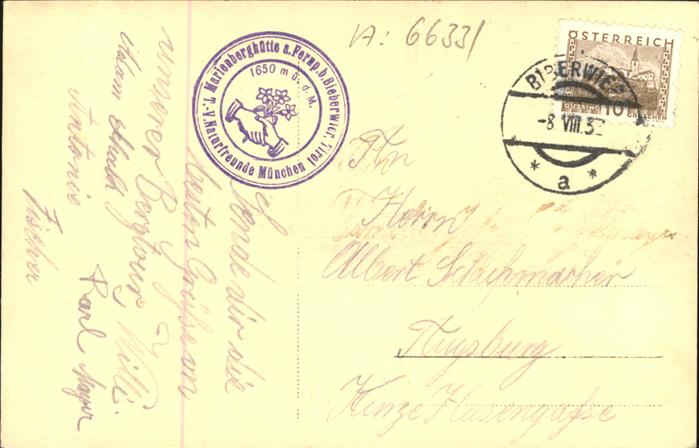 A: 6633/
T.-V. Naturfreunde München
Marienberghütte a. Fernp. b. Bieberwier, Tirol
1650 m ü. d. M.
ÖSTERREICH
GÜSSING
BURGENLAND
10
BIBERWIER
-8. VIII. 3
* a *
An
Herrn
Albert Schuhmacher
Augsburg
Kinze Hasengasse
Sende dir die
besten Grüße von
unserer Bergtour
Willi
Antonie
Karl Mayer
Fischer